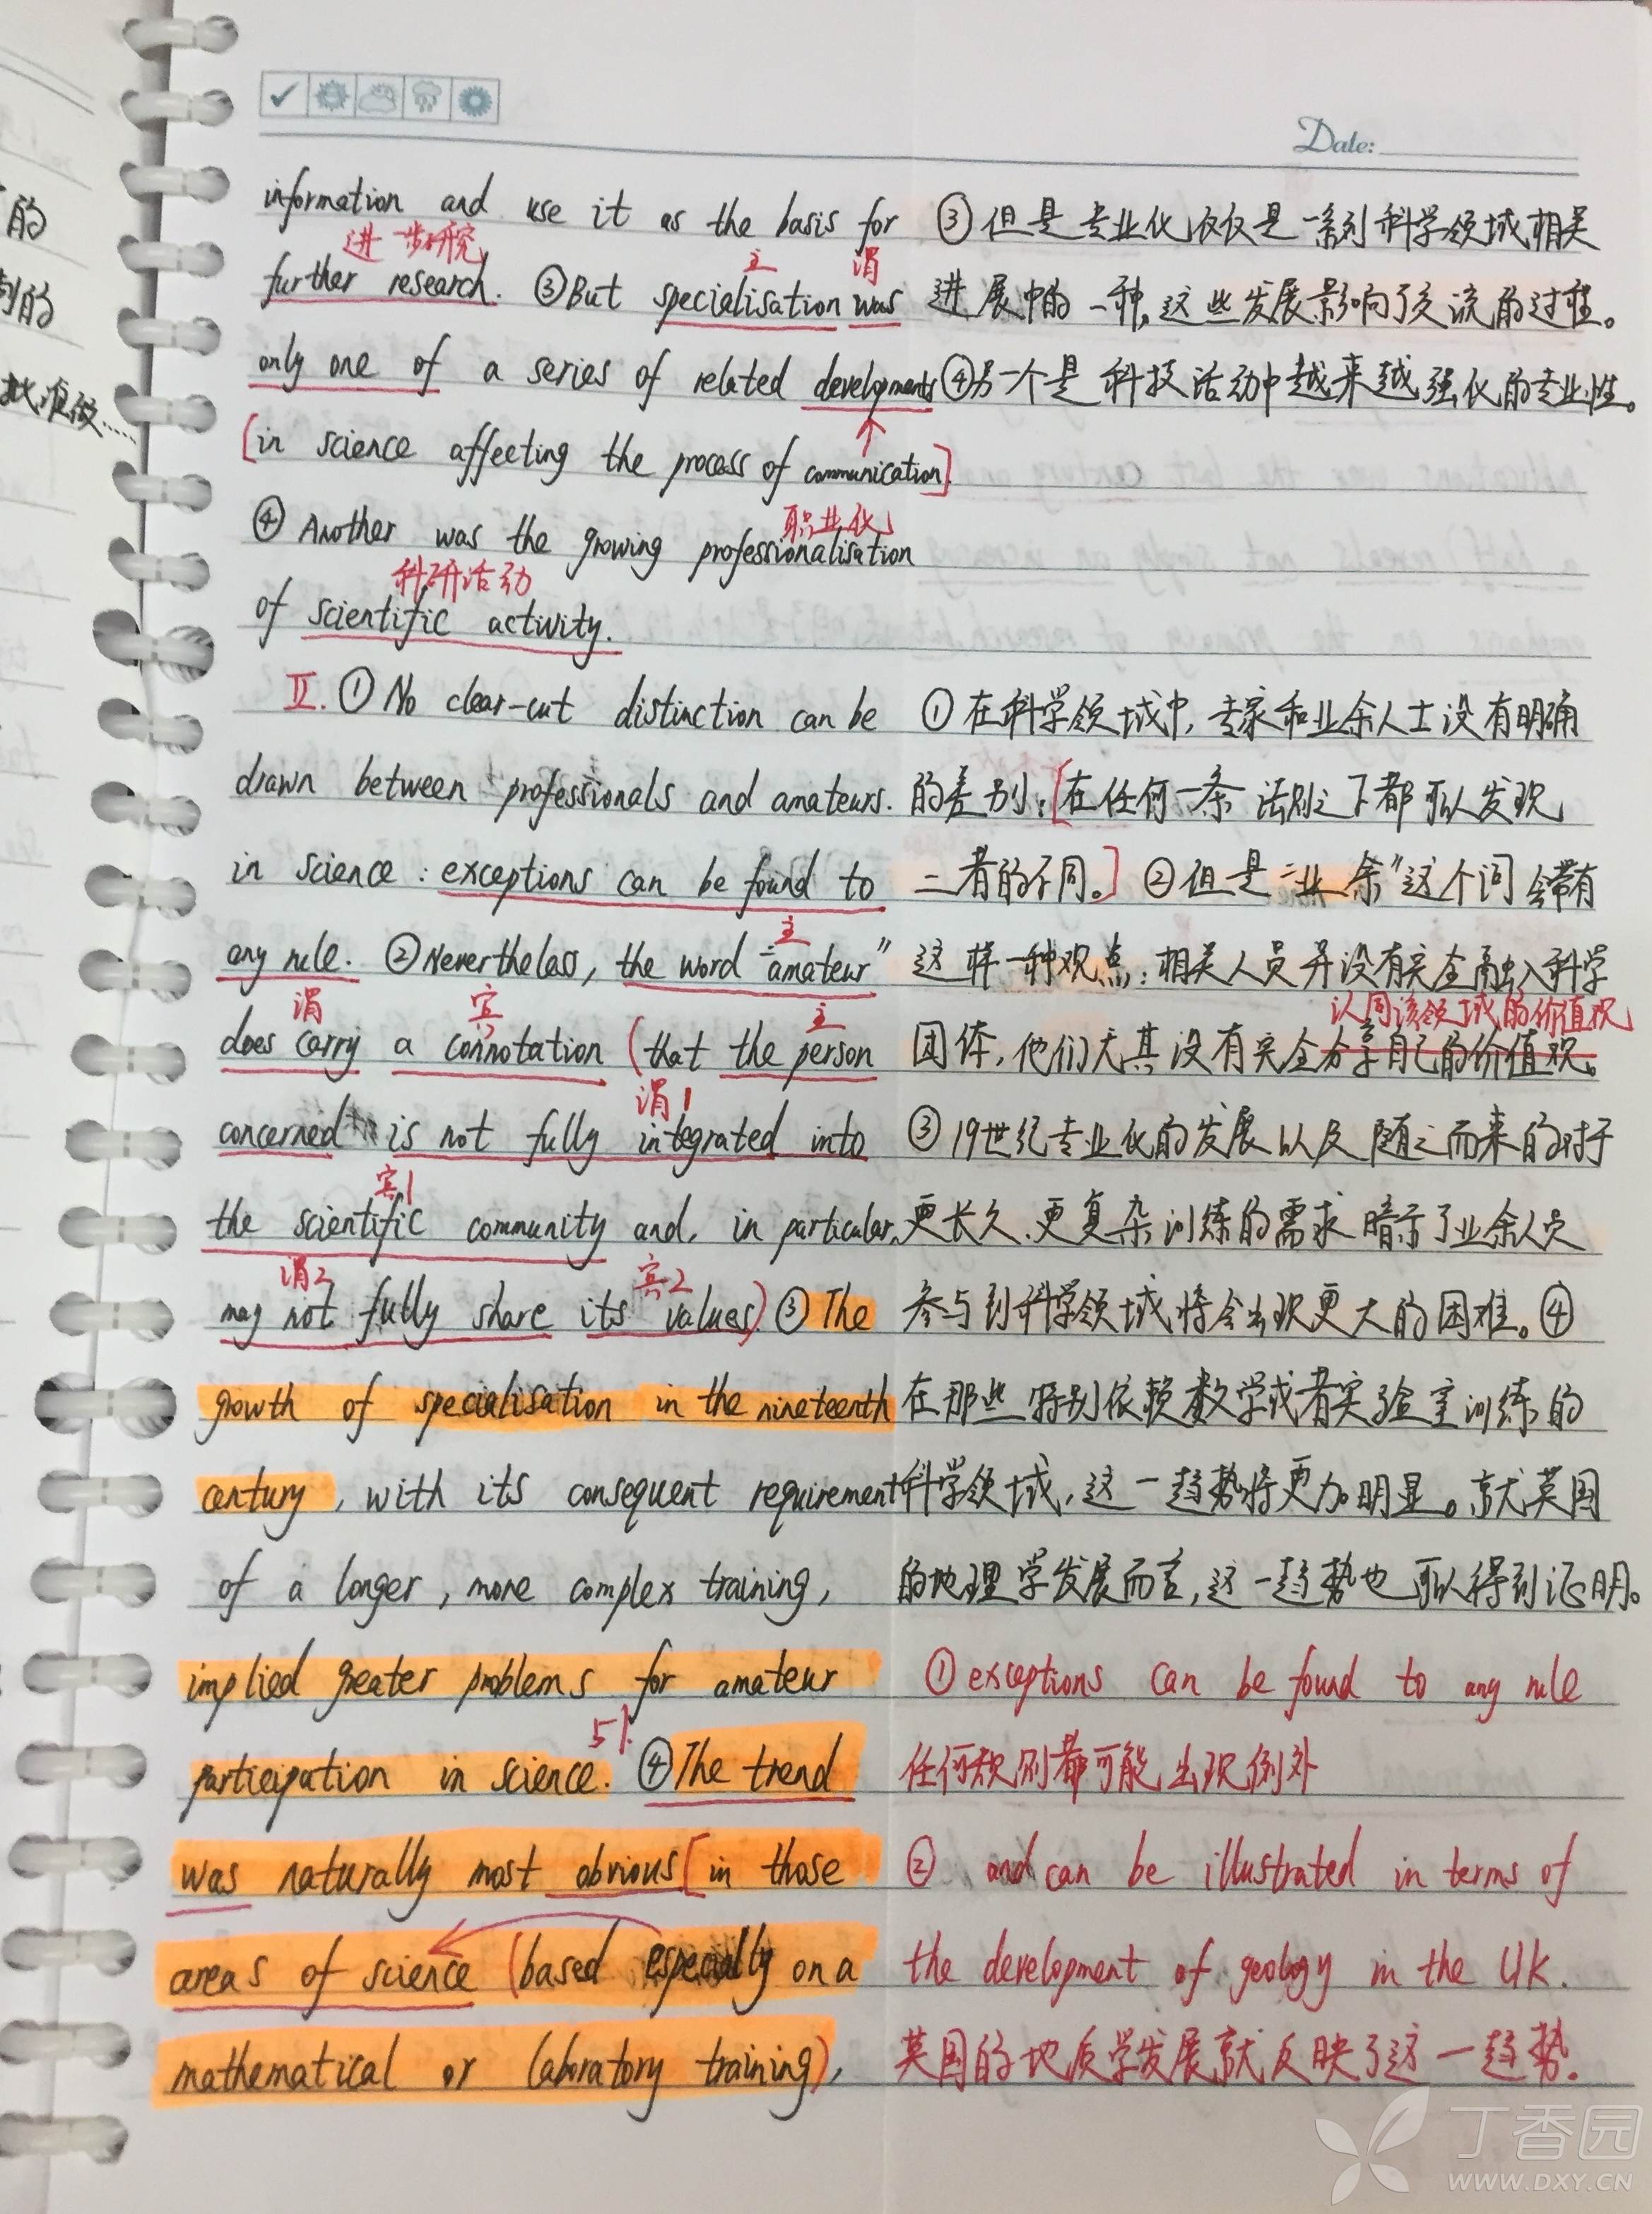 Date:
information and use it as the basis for
进一步研究
主 谓
further research. ③But specialisation was
only one of a series of related developments
[in science affecting the process of communication].
职业化
④ Another was the growing professionalisation
科研活动
of scientific activity.
II. ① No clear-cut distinction can be
drawn between professionals and amateurs.
in science : exceptions can be found to
主
any rule. ②Nevertheless, the word "amateur"
谓 宾 主
does carry a connotation (that the person
谓1
concerned is not fully integrated into
宾1
the scientific community and, in particular,
谓2 宾2
may not fully share its values) ③ The
growth of specialisation in the nineteenth
century, with its consequent requirement
of a longer, more complex training,
implied greater problems for amateur
51.
participation in science. ④The trend
was naturally most obvious [in those
areas of science (based especially on a
mathematical or laboratory training),
③但是专业化仅仅是一系列科学领域相关
进展中的一种,这些发展影响了交流的过程。
④另一个是科技活动中越来越强化的专业性。
①在科学领域中,专家和业余人士没有明确
的差别:[在任何一条法则之下都可以发现
二者的不同。] ②但是"业余"这个词会带有
这样一种观点:相关人员并没有完全融入科学
认同该领域的价值观
团体,他们尤其没有完全分享自己的价值观。
③19世纪专业化的发展以及随之而来的对于
更长久、更复杂训练的需求暗示了业余人员
参与到科学领域将会出现更大的困难。④
在那些特别依赖数学或者实验室训练的
科学领域,这一趋势将更加明显。就英国
的地理学发展而言,这一趋势也可以得到证明。
① exceptions can be found to any rule
任何规则都可能出现例外
② and can be illustrated in terms of
the development of geology in the UK.
英国的地质学发展就反映了这一趋势.
的
制的
丁香园
WWW.DXY.CN